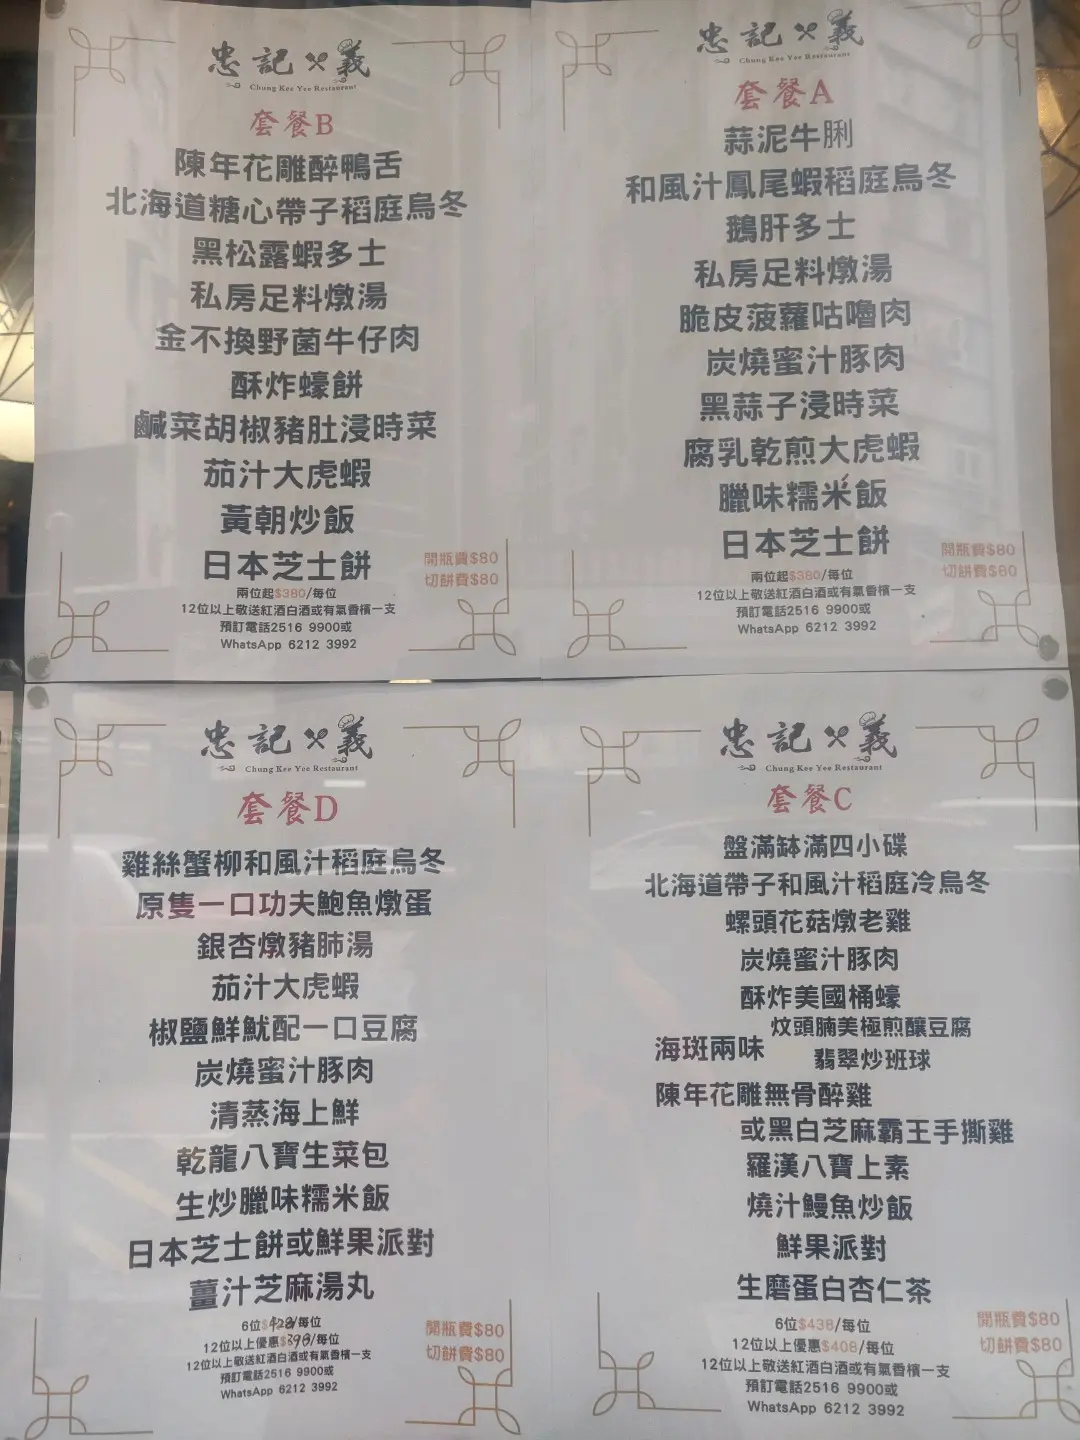 忠記義
Chung Kee Yee Restaurant
套餐B
陳年花雕醉鴨舌
北海道糖心帶子稻庭烏冬
黑松露蝦多士
私房足料燉湯
金不換野菌牛仔肉
酥炸蠔餅
鹹菜胡椒豬肚浸時菜
茄汁大虎蝦
黃朝炒飯
日本芝士餅
兩位起$380/每位
12位以上敬送紅酒白酒或有氣香檳一支
預訂電話2516 9900或
WhatsApp 6212 3992
開瓶費$80
切餅費$80
忠記義
Chung Kee Yee Restaurant
套餐A
蒜泥牛脷
和風汁鳳尾蝦稻庭烏冬
鵝肝多士
私房足料燉湯
脆皮菠蘿咕嚕肉
炭燒蜜汁豚肉
黑蒜子浸時菜
腐乳乾煎大虎蝦
臘味糯米飯
日本芝士餅
兩位起$380/每位
12位以上敬送紅酒白酒或有氣香檳一支
預訂電話2516 9900或
WhatsApp 6212 3992
開瓶費$80
切餅費$80
忠記義
Chung Kee Yee Restaurant
套餐D
雞絲蟹柳和風汁稻庭烏冬
原隻一口功夫鮑魚燉蛋
銀杏燉豬肺湯
茄汁大虎蝦
椒鹽鮮魷配一口豆腐
炭燒蜜汁豚肉
清蒸海上鮮
乾龍八寶生菜包
生炒臘味糯米飯
日本芝士餅或鮮果派對
薑汁芝麻湯丸
6位$428/每位
12位以上優惠$398/每位
12位以上敬送紅酒白酒或有氣香檳一支
預訂電話2516 9900或
WhatsApp 6212 3992
開瓶費$80
切餅費$80
忠記義
Chung Kee Yee Restaurant
套餐C
盤滿缽滿四小碟
北海道帶子和風汁稻庭冷烏冬
螺頭花菇燉老雞
炭燒蜜汁豚肉
酥炸美國桶蠔
海斑兩味
炆頭腩美極煎釀豆腐
翡翠炒班球
陳年花雕無骨醉雞
或黑白芝麻霸王手撕雞
羅漢八寶上素
燒汁鰻魚炒飯
鮮果派對
生磨蛋白杏仁茶
6位$438/每位
12位以上優惠$408/每位
12位以上敬送紅酒白酒或有氣香檳一支
預訂電話2516 9900或
WhatsApp 6212 3992
開瓶費$80
切餅費$80